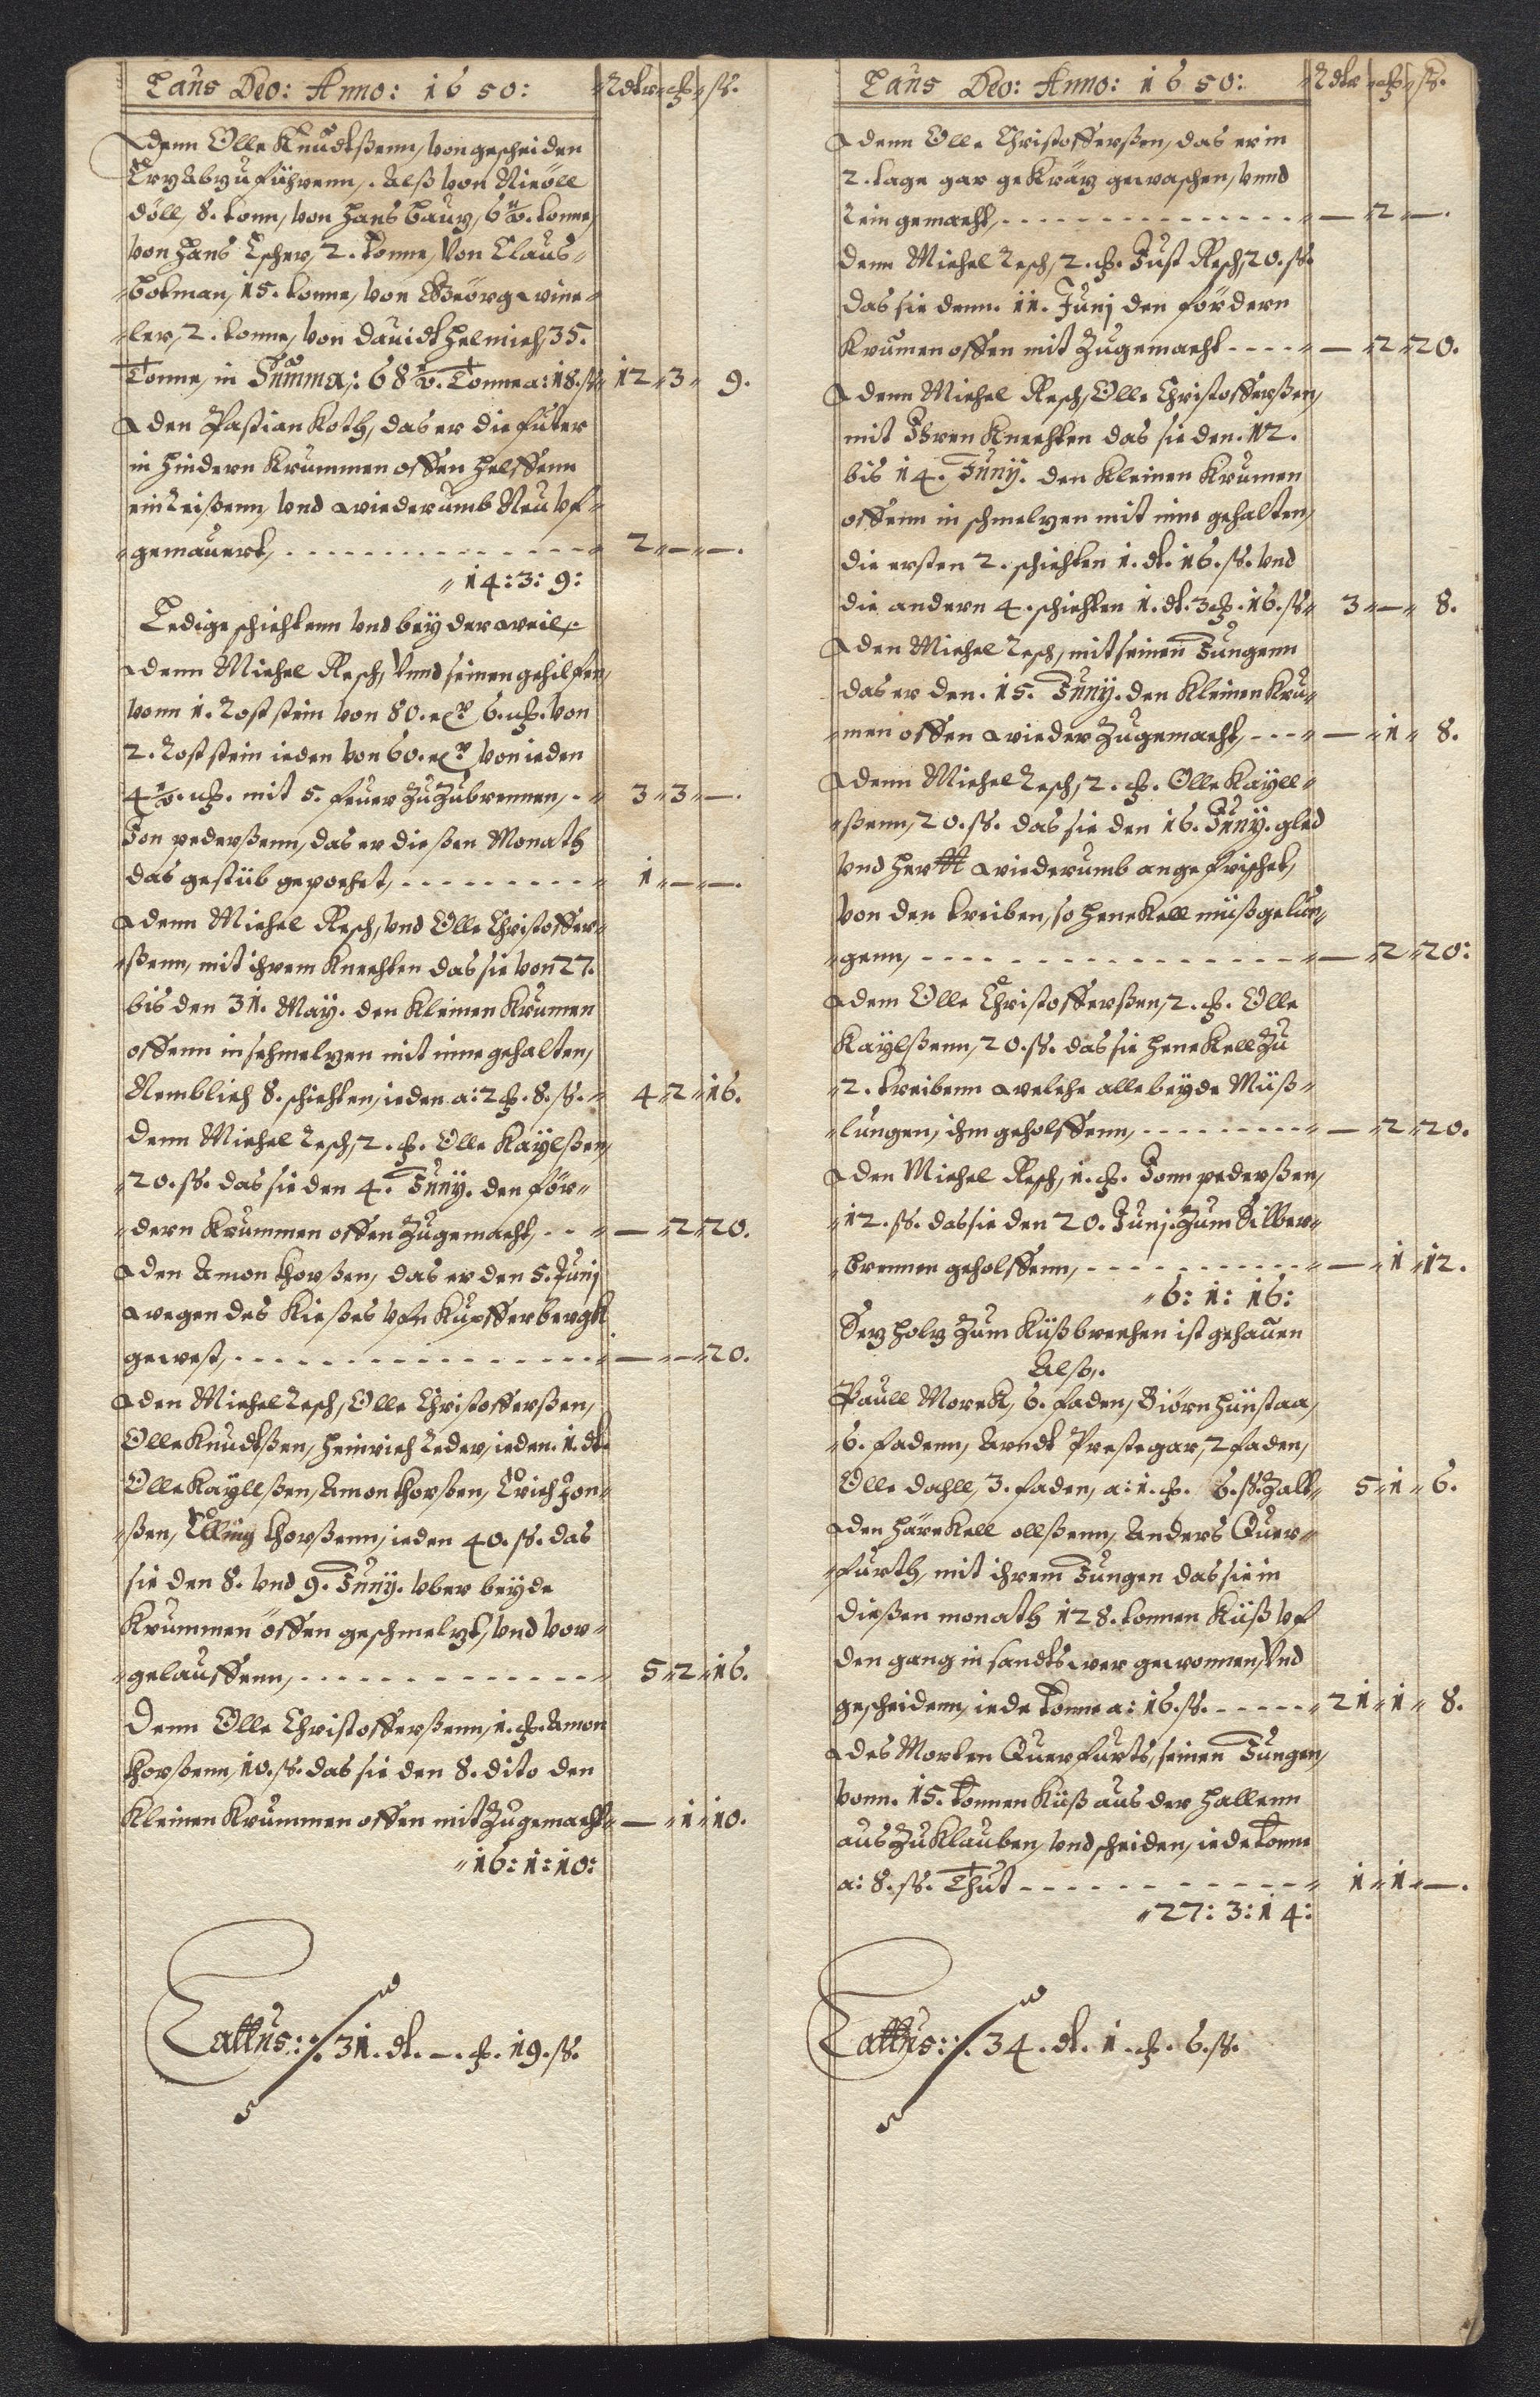 Laus Deo: Anno: 1650: Rdlr ß.
denn Olle Knudtßenn, von gescheiden
Ertz abzuführenn, Alß von Nieöll
döll, 8. tonn, von Hans Bauz, 6½. tonne,
von Hans Escher, 2. tonne, Von Claus
Botman, 15. tonne, von Geörg wine
ler, 2. tonne, von dauidt Helmich, 35.
Tonne, in Summa: 68½. Tonne a: 18. ß 12 3 9.
den Pastian Koth, das er die futer
in hindern Krummen offen helffenn
ein reißenn, vnd wiederumb Neu vf
gemauert, 2 — —.
14: 3: 9:
Ledige schichtenn vnd bey der weil,
denn Michel Resch, vnnd seinen gehilfen,
vonn 1. Rost stein von 80. 6. von
2. Rost stein ieden von 60. von ieden
4½. mit 5. feuer zuzubrennen, 3 3 —.
Jon pederßenn, das er dießen Monath
das gestüb gepochet, 1 — —.
denn Michel Resch, vnd Olle Christoffer
ßenn, mit ihrem Knechten das sie von 27.
bis den 31. May. den Kleinen Krumen
offenn in schmeltzen mit inne gehalten,
Nemblich 8. schichten, ieden a: 2 8. ß. 4 2 16.
denn Michel Resch, 2. Olle Kaylßen,
20. ß. das sie den 4. Juny. den för
dern Krummen offen Zugemacht, — 2 20.
den Amon thorßen, das er den 5. Junj
wegen des Kießes vfn Kupfferbergk
gewest, — — 20.
den Michel Resch, Olle Christofferßen,
Olle Knudtßen, Heinrich Leder, ieden. 1. dt.
Olle Kayllßen, Amon thorßen, Erich Jon
ßen, Elling thorßenn, ieden 40. ß. das
sie den 8. vnd 9. Juny. vber beyde
Krummen öffen geschmeltzt, vnd vor
gelauffenn, 5 2 16.
Denn Olle Christofferßenn, 1. Amon
thorßenn, 10. ß. das sie den 8. dito den
Kleinen Krummen offen mit Zugemacht — 1 10.
16: 1: 10:
Lattus: 31. dt. —. 19. ß.
Laus Deo: Anno: 1650: Rdlr ß.
denn Olle Christofferßen, das er in
2. tage gar gekrätz gewaschen, vnnd
rein gemacht, — 2 —.
denn Michel Resch, 2. Just Resch, 20. ß.
das sie denn. 11. Junj den fördern
Krumen offen mit Zugemacht — 2 20.
denn Michel Resch, Olle Christofferßen,
mit Ihren Knechten das sie den. 12.
bis 14. Juny. den Kleinen Krumen
offenn in schmeltzen mit inne gehalten,
die ersten 2. schichten 1. dt. 16. ß. vnd
die andern 4. schichten 1. dt. 3. 16. ß 3 — 8.
den Michel Resch, mit seinen Jungenn
das er den. 15. Juny. den Kleinen Kru
men offen wieder Zugemacht, — 1 8.
denn Michel Resch, 2. Olle Kayll
ßenn, 20. ß. das sie den 16. Juny. gled
vnd Hertt wiederumb angefrischet,
von den treiben, so Henckell müßgelun
genn, — 2 20:
dem Olle Christofferßen, 2. Olle
Kaylßenn, 20. ß. das sie Henckell zu
2. treibenn welche alle beyde Müß
lungen, ihm geholffenn, — 2 20.
den Michel Resch, 1. Jonn pederßen,
12. ß. das sie den 20. Junj. zum Silber
brennen geholffenn, — 1 12.
6: 1: 16:
Setz holtz zum Küßbrechen ist gehauen
Alß,
Paull Morck, 6. faden, Biörn Hünstaa,
6. fadenn, Arndt Prestegar, 2 faden,
Olle dahll, 3. faden, a: 1. 6. ß. Zalt 5 1 6.
den Härckell ollßenn, Anders Quer
furth, mit ihrem Jungen das sie in
dießen monath 128. tonnen Küß vf
den gang in sandtswer gewonnen, vnd
gescheidenn, iede Tonne a: 16. ß. 21 1 8.
des Morten Querfurts, seinen Jungen,
vonn. 15. Tonnen Küß aus der Hallenn
aus Zuklauben, vnd scheiden, iede Tonne
a: 8. ß. Thut 1 1 —.
27: 3: 14:
Lattus: 34. dt. 1. 6. ß.